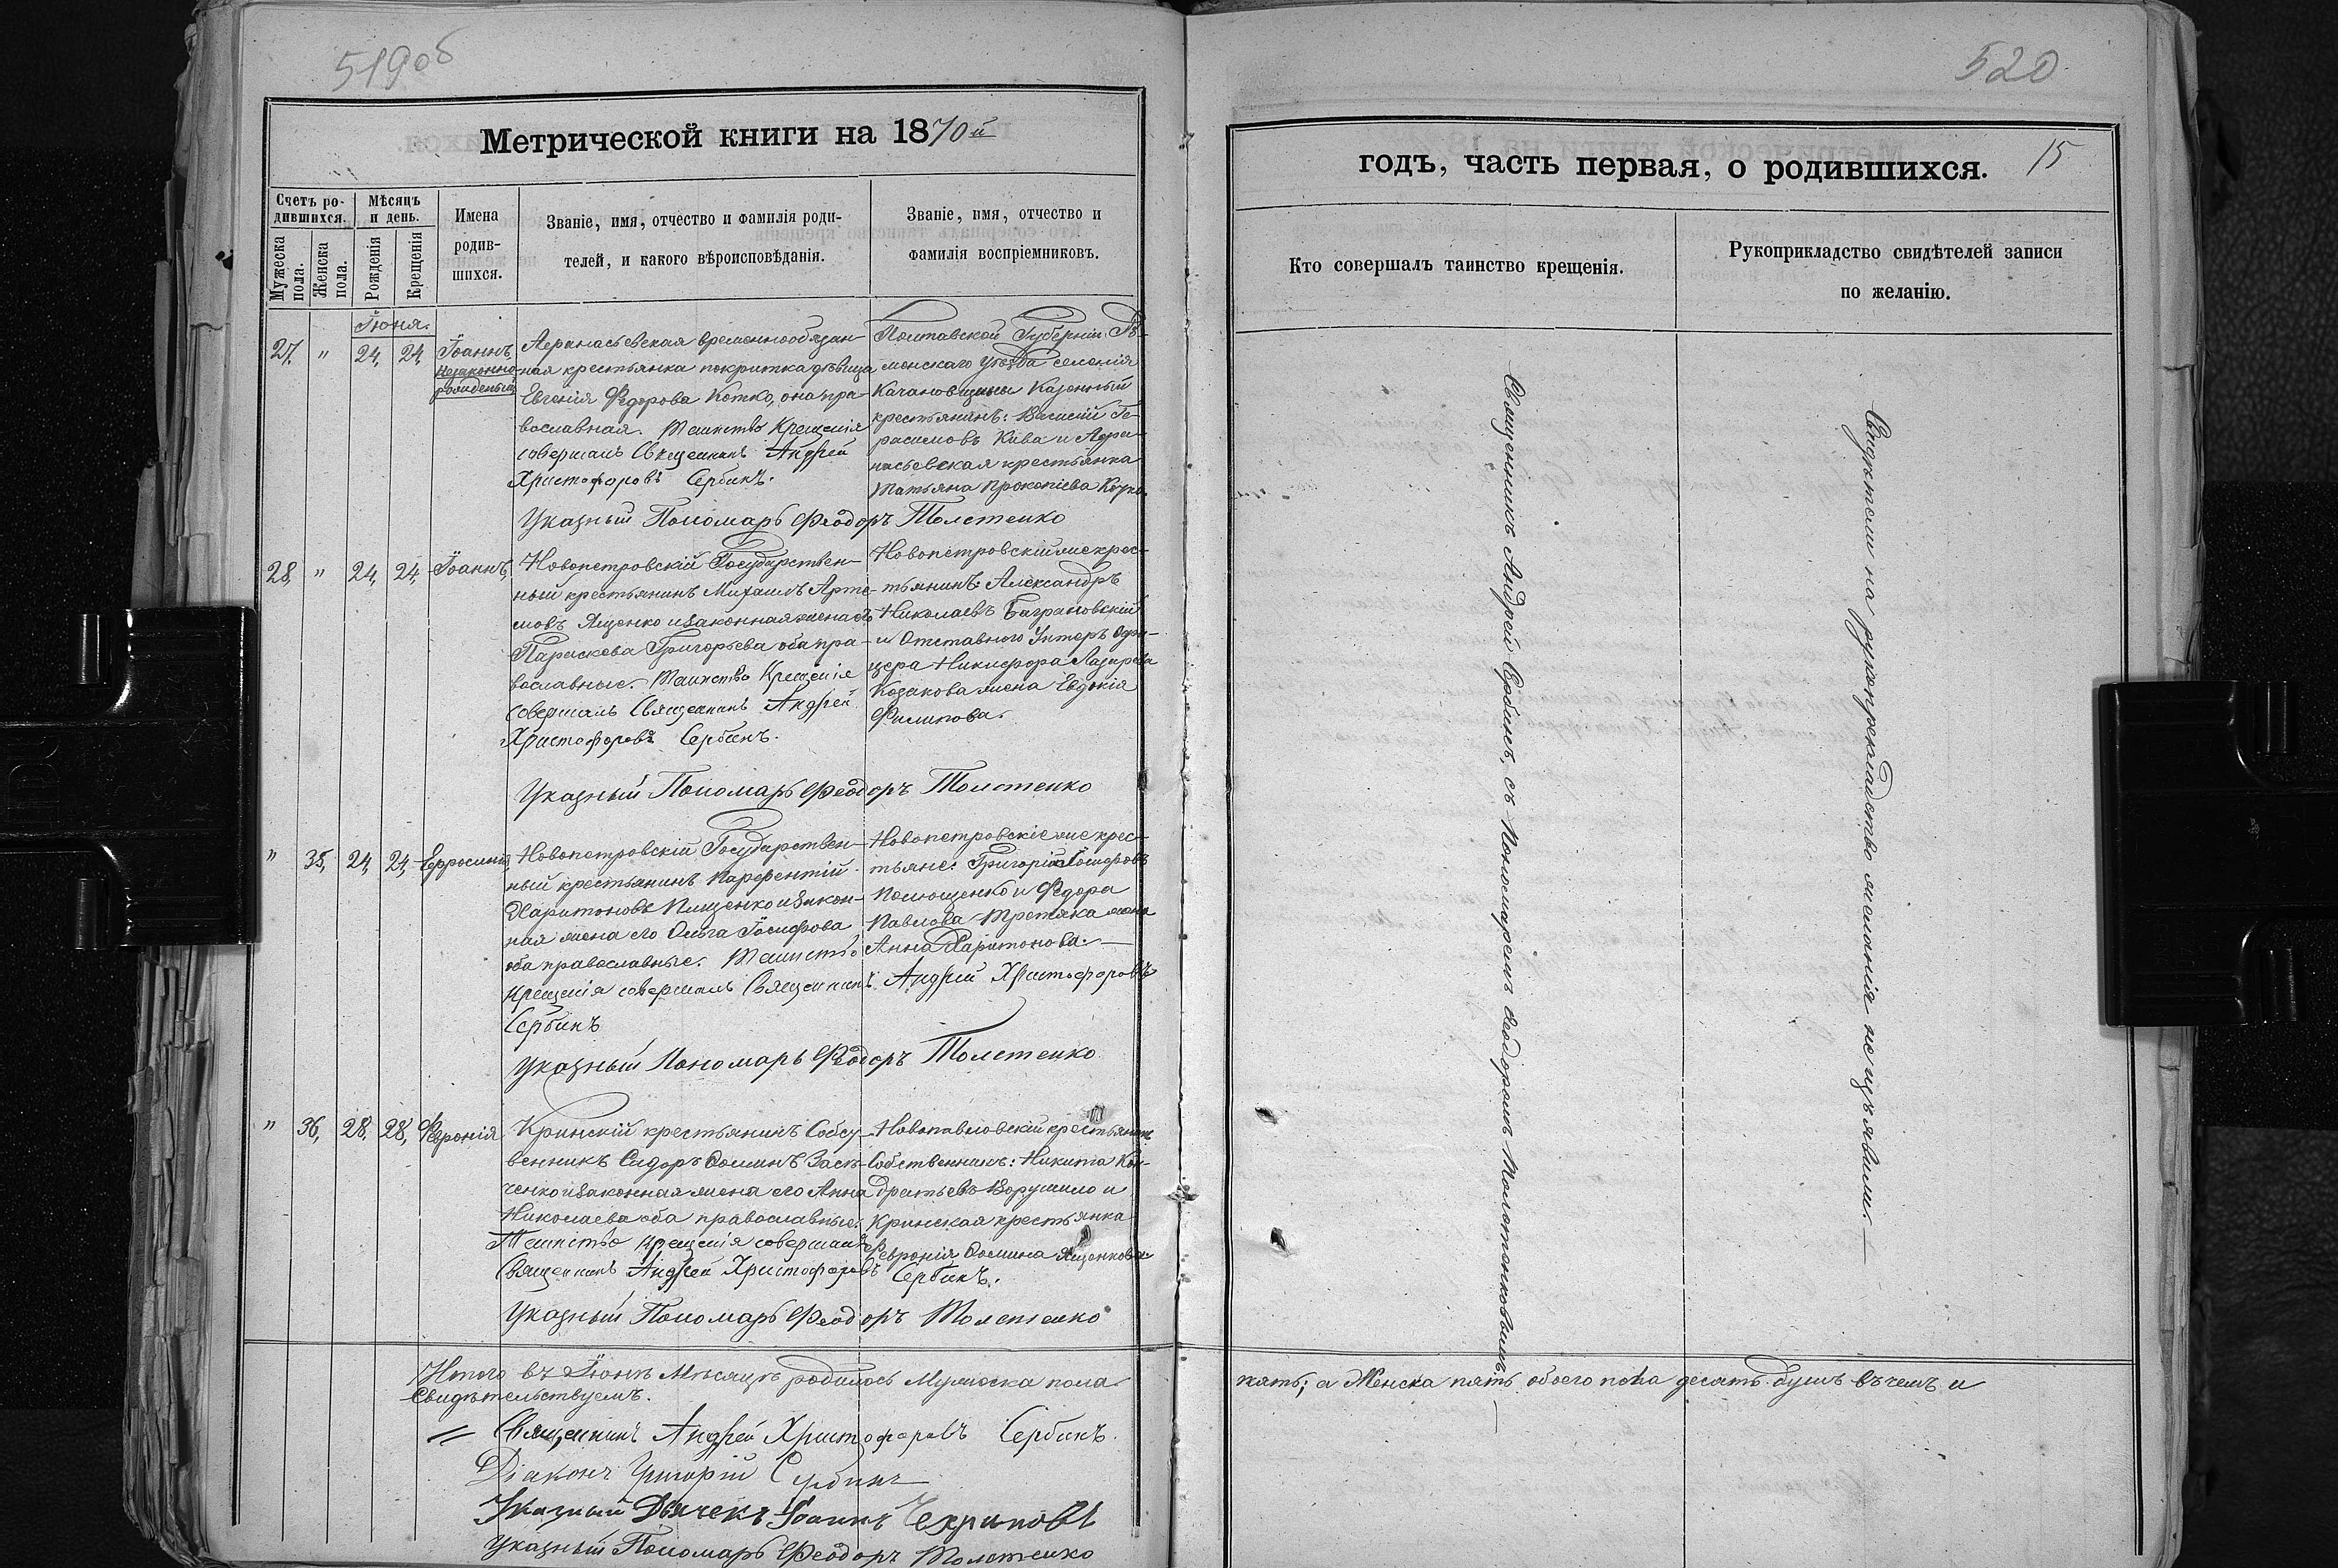 519 об
Метрической книги на 1870й
Счетъ ро-
дившихся.
Мѣсяцъ
и день.
Мужеска
пола.
Женска
пола.
Рожденія
Крещенія
Имена
родив-
шихся.
Званіе, имя, отчество и фамилія роди-
телей, и какого вѣроисповѣданія.
Званіе, имя, отчество и
фамилія воспріемниковъ.
Іюня.
27, " 24, 24, Іоаннъ,
незаконно-
рожденый
Афанасьевская временнообязан-
ная крестьянка покритка дѣвица
Евгенія Федорова Котко, она пра-
вославная. Таинство Крещенія
совершалъ Священникъ Андрей
Христофоровъ Сербинъ.
Полтавской Губерніи Ро-
менскаго уѣзда селенія
Качановщины Казенный
крестьянинъ: Василій Ге-
расимовъ Кива и Афа-
насьевская крестьянка
Татьяна Прокопіева
Указный Пономарь Феодоръ Толстенко
28, " 24, 24, Іоаннъ,
Новопетровскій Государствен-
ный крестьянинъ Михаилъ Арте-
мовъ Яценко и законная жена его
Параскева Григорьева оба пра-
вославные. Таинство Крещенія
совершалъ Священникъ Андрей
Христофоровъ Сербинъ.
Новопетровскій же крес-
тьянинъ: Александръ
Николаевъ Баграновскій
и Отставного Унтеръ Офи-
цера Никифора Лазарева
Козакова жена Евдокія
Филипова.
Указный Пономарь Феодоръ Толстенко
" 35, 24, 24, Ефросинія,
Новопетровскій Государствен-
ный крестьянинъ Парфентій
Харитоновъ Пищенко и закон-
ная жена его Ольга Іосифова
оба православные. Таинство
Крещенія совершалъ Священникъ Андрей Христофоровъ
Сербинъ
Новопетровскіе же крес-
тьяне: Григорій Іосифовъ
и Федора
Павлова Третяка жена
Анна Харитонова.
Указный Пономарь Феодоръ Толстенко
" 36, 28, 28, Февронія
Кринскій крестьянинъ Собст-
венникъ Сидоръ Фоминъ
ченко и законная жена его Анна
Николаева оба православные.
Таинство Крещенія совершалъ
Священникъ Андрей Христофоровъ Сербинъ.
Новопавловскій крестьянинъ
Собственникъ: Никита Кон-
дратьевъ Ворушило и
Кринская крестьянка
Февронія Фомина Яценкова
Указный Пономарь Феодоръ Толстенко
Итого въ Іюнѣ Мѣсяцѣ родилось Мужеска пола
Свидѣтельствуемъ.
Священникъ Андрей Христофоровъ Сербинъ.
Діаконъ Григорій Сербинъ
Указный Дьячекъ Іоаннъ
Указный Пономарь Феодоръ Толстенко
520
годъ, часть первая, о родившихся. 15
Кто совершалъ таинство крещенія.
Рукоприкладство свидѣтелей записи
по желанію.
Священникъ Андрей Сербинъ, съ Пономаремъ Феодоромъ Толстенковымъ.
Свидѣтели на рукоприкладство желанія не изъявили.
пять; а Женска пять, обоего пола десять душъ въ чемъ и